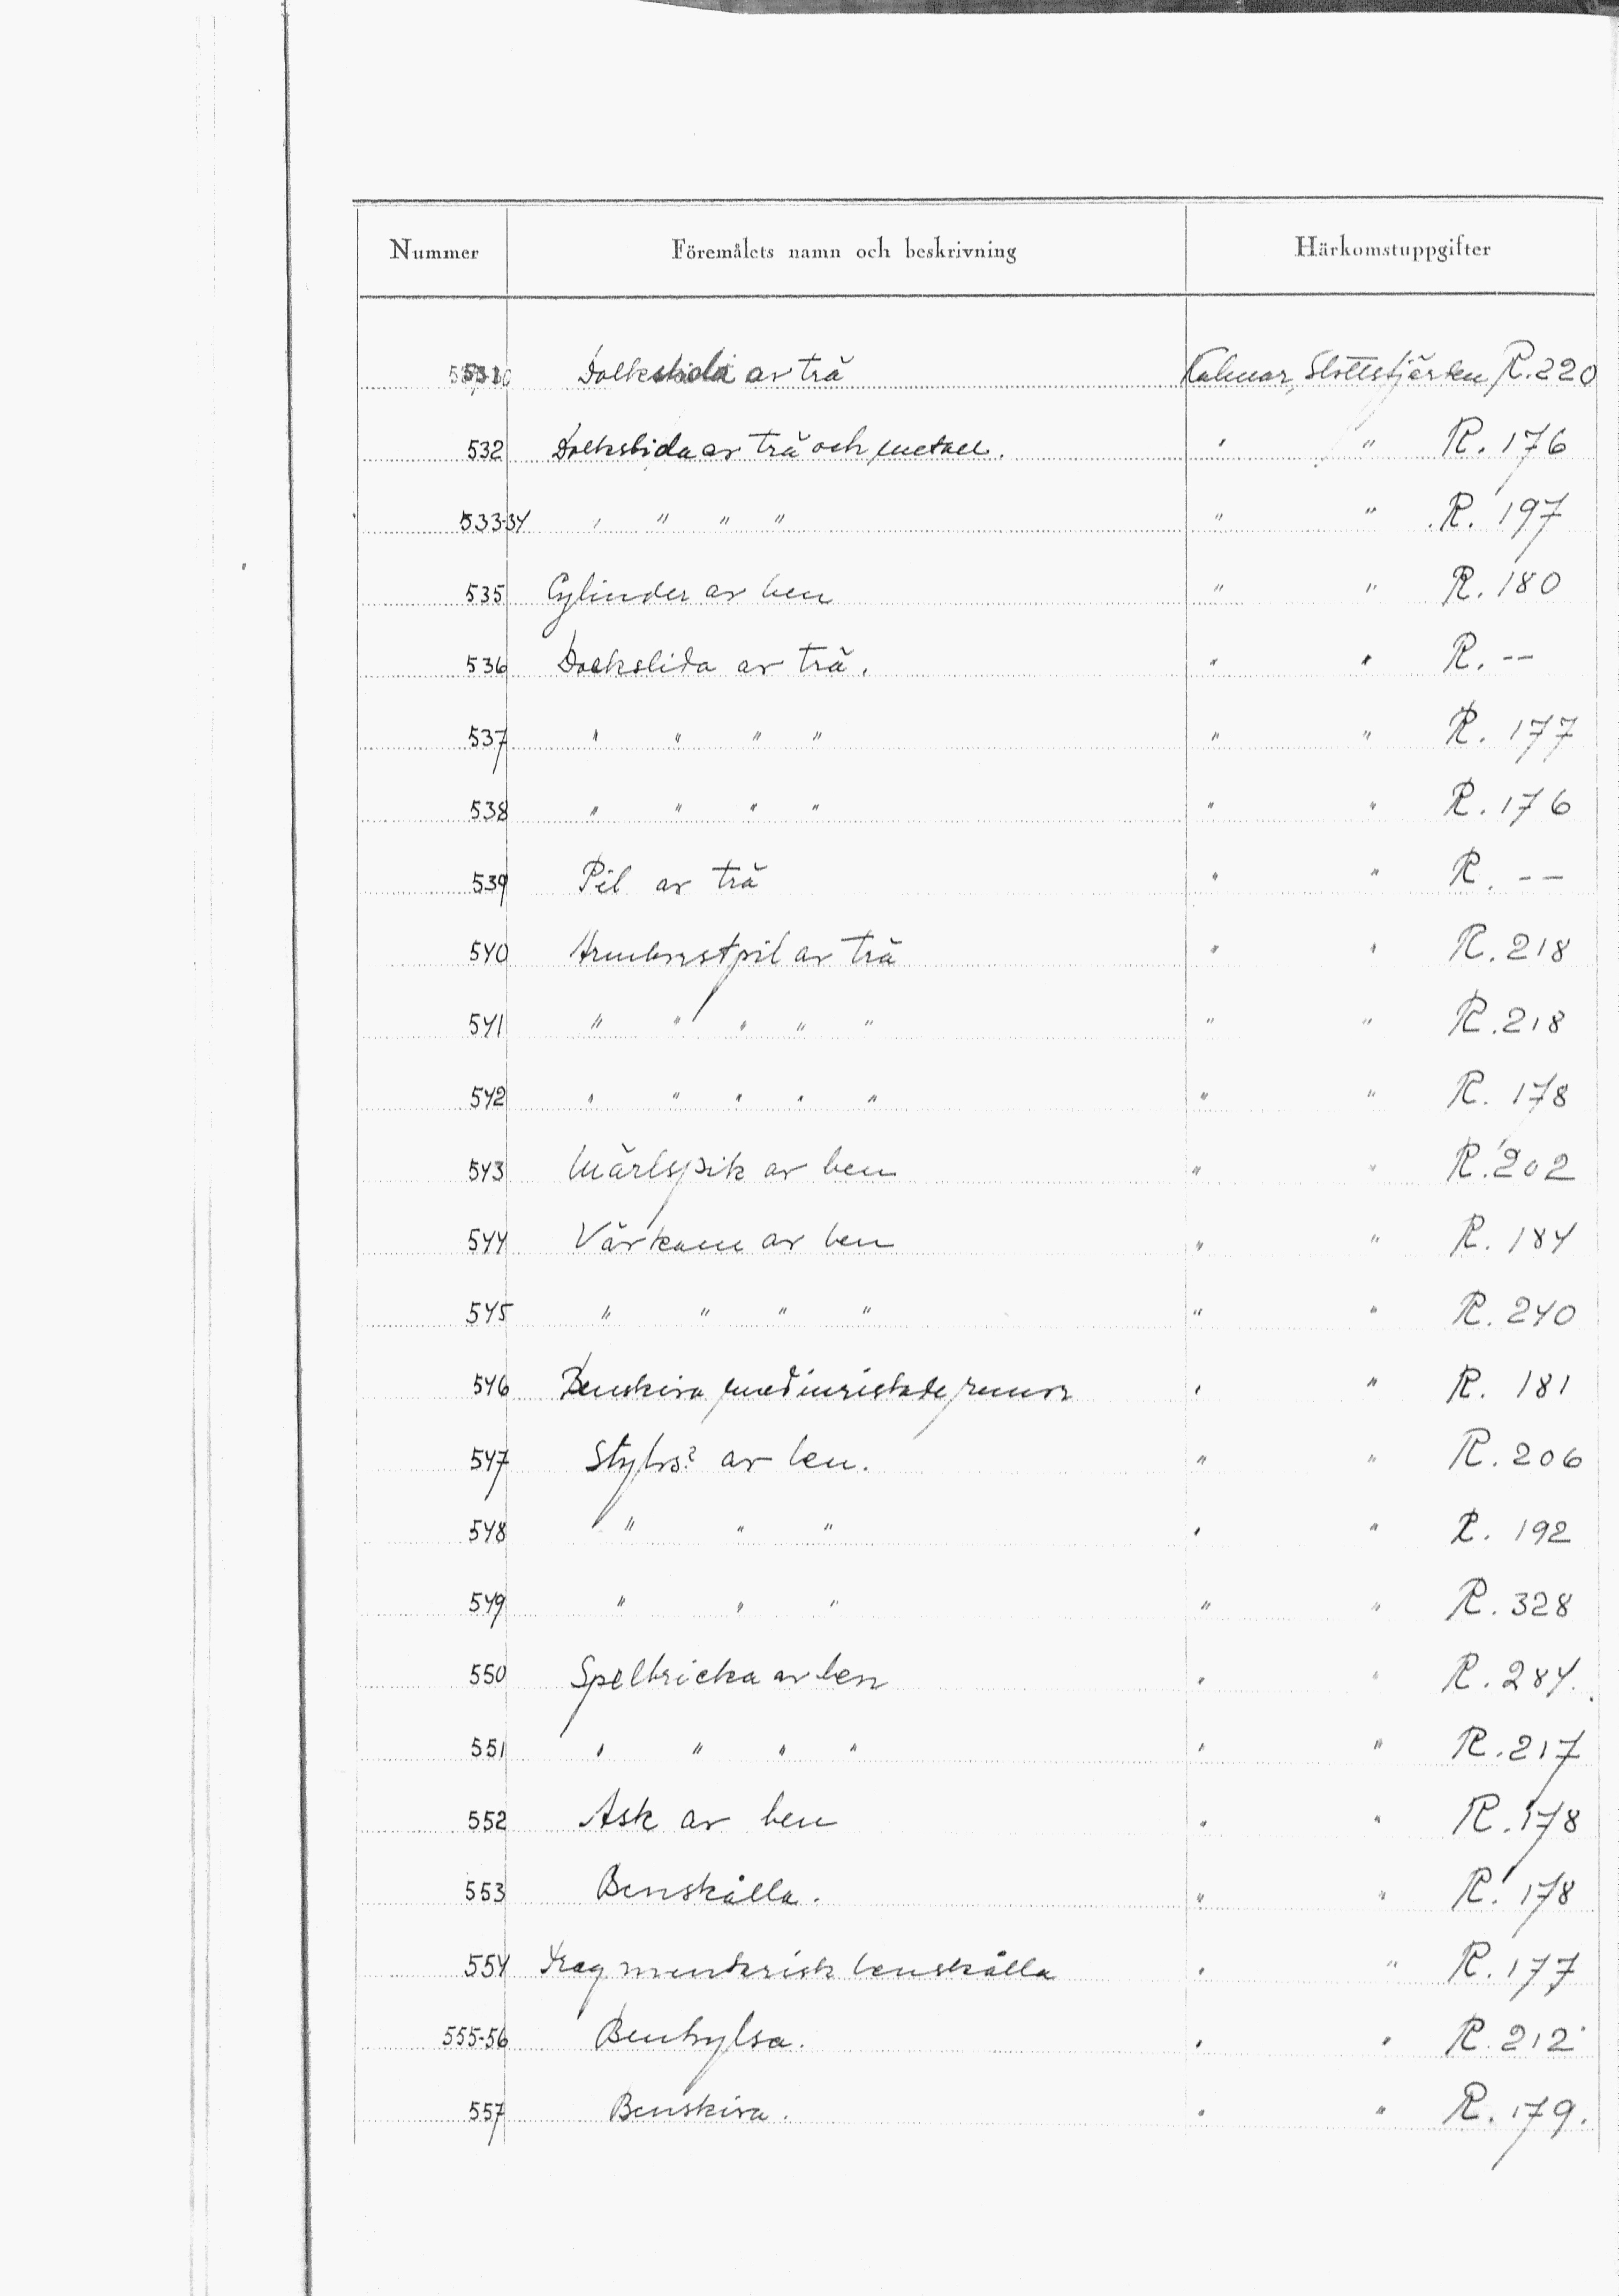 Nummer Föremålets namn och beskrivning Härkomstuppgifter
531 Dolkslida av trä Kalmar, Slottsfjärden R.220
532 Dolkslida av trä och metall. " " R. 176
533-34 " " " " " " R. 197
535 Cylinder av ben " " R. 180
536 Dolkslida av trä. " " R. --
537 " " " " " " R. 177
538 " " " " " " R. 176
539 Pil av trä " " R. --
540 Armborstpil av trä " " R. 218
541 " " " " " " " R. 218
542 " " " " " " " R. 178
543 Märlspik av ben " " R. 202
544 Vävkam av ben " " R. 184
545 " " " " " " R. 240
546 Benskiva med inristade runor " " R. 181
547 Stylus? av ben. " " R. 206
548 " " " " " R. 192
549 " " " " " R. 328
550 Spelbricka av ben " " R. 284.
551 " " " " " " R. 217
552 Ask av ben " " R. 178
553 Benskålla. " " R. 178
554 Fragmentarisk benskålla " " R. 177
555-56 Benhylsa. " " R. 212
557 Benskiva. " " R. 179.